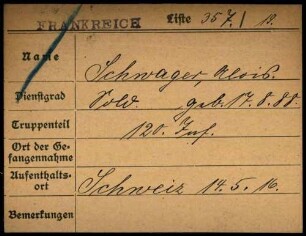 FRANKREICH Liste 357./ 19.
Name
Schwager, Alois.
Dienstgrad
Sold. geb. 17.8.88.
Truppenteil
120. Inf.
Ort der Ge-
fangennahme
Aufenthalts-
ort
Schweiz 14.5.16.
Bemerkungen